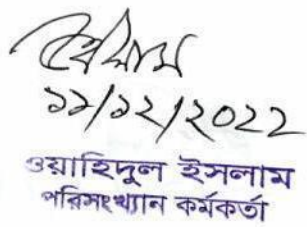 ১১/১২/২০২২
ওয়াহিদুল ইসলাম
পরিসংখ্যান কর্মকর্তা